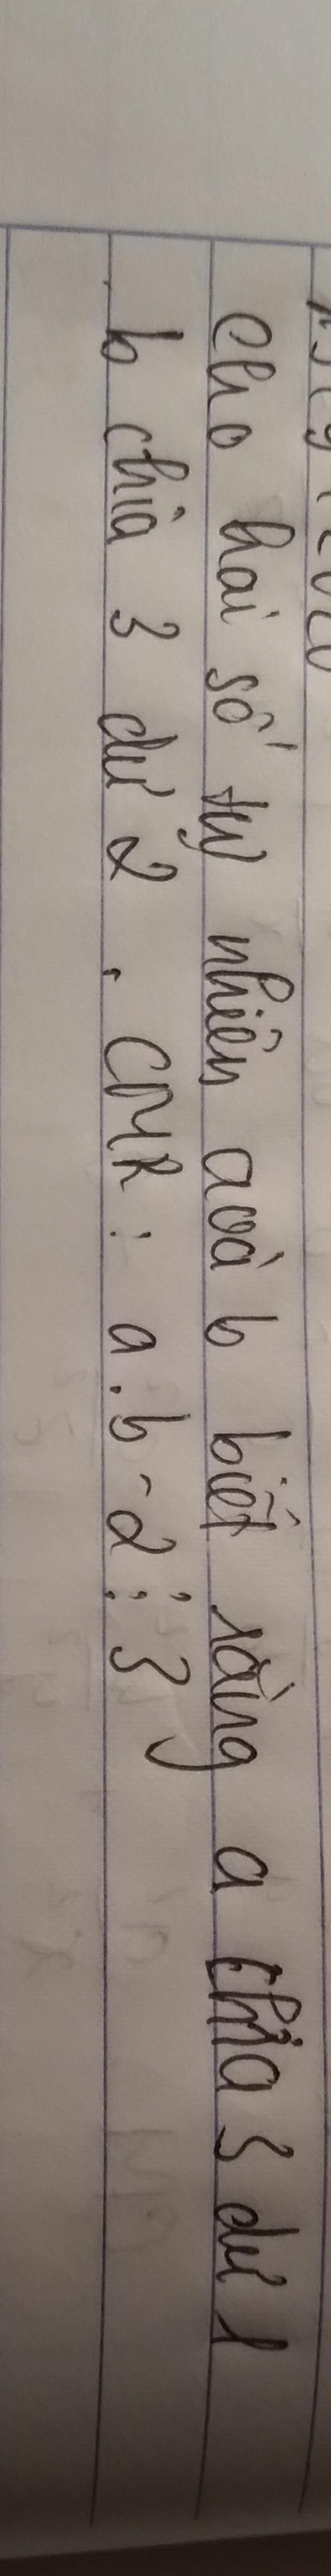 Cho hai số tự nhiên a và b biết rằng a chia 3 dư 1
b chia 3 dư 2 . CMR : a.b - 2 ⋮ 3